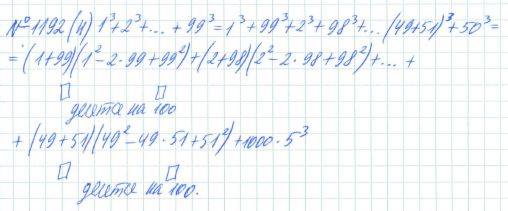 №1192(н) 1³+2³+...+99³=1³+99³+2³+98³+...(49+51)³+50³=
=(1+99)(1²-2·99+99²)+(2+98)(2²-2·98+98²)+...+
делется на 100
+(49+51)(49²-49·51+51²)+1000·5³
делется на 100.